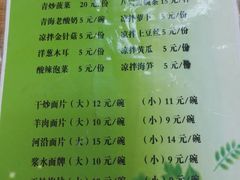 青炒菠菜 20元/份
青海老酸奶 5元/份 凉拌萝卜 5元/份
凉拌金针菇 5元/份 凉拌土豆丝 5元/份
洋葱木耳 5元/份 凉拌黄瓜 5元/份
酸辣泡菜 5元/份 凉拌海笋 5元/份
干炒面片(大)12元/碗 (小)11元/碗
羊肉面片(大)10元/碗 (小)9元/碗
河沿面片(大)15元/碗 (小)14元/碗
浆水面片(大)10元/碗 (小)9元/碗